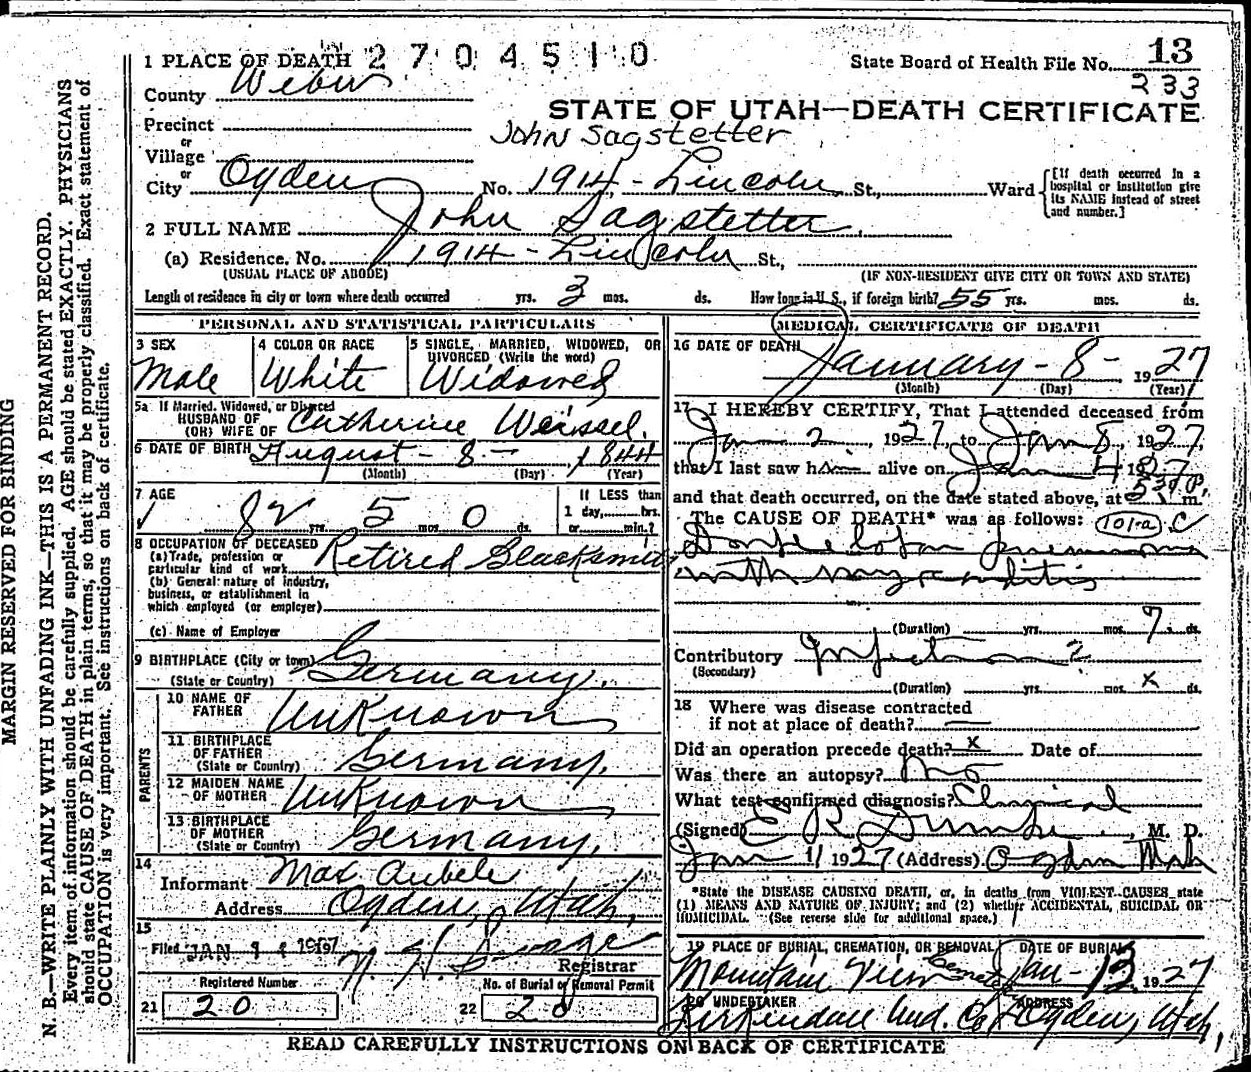 1 PLACE OF DEATH 2704510
State Board of Health File No. 13
233
County Weber
STATE OF UTAH—DEATH CERTIFICATE
Precinct
John Sagstetter
or
Village
or
City Ogden No. 1914 - Lincoln St., Ward
[If death occurred in a hospital or institution give its NAME instead of street and number.]
2 FULL NAME John Sagstetter
(a) Residence. No. 1914 - Lincoln St.,
(USUAL PLACE OF ABODE) (IF NON-RESIDENT GIVE CITY OR TOWN AND STATE)
Length of residence in city or town where death occurred yrs. 3 mos. ds. How long in U. S., if foreign birth? 55 yrs. mos. ds.
PERSONAL AND STATISTICAL PARTICULARS
3 SEX
Male
4 COLOR OR RACE
White
5 SINGLE, MARRIED, WIDOWED, OR
DIVORCED (Write the word)
Widowed
5a If Married, Widowed, or Divorced
HUSBAND OF
(OR) WIFE OF Catherine Weissel.
6 DATE OF BIRTH August - 8 - 1844
(Month) (Day) (Year)
7 AGE
82 yrs. 5 mos. 0 ds.
If LESS than
1 day,......hrs.
or......min.?
8 OCCUPATION OF DECEASED
(a) Trade, profession or
particular kind of work Retired Blacksmith
(b) General nature of industry,
business, or establishment in
which employed (or employer)
(c) Name of Employer
9 BIRTHPLACE (City or town)
(State or Country) Germany.
PARENTS
10 NAME OF
FATHER Unknown
11 BIRTHPLACE
OF FATHER
(State or Country) Germany.
12 MAIDEN NAME
OF MOTHER Unknown
13 BIRTHPLACE
OF MOTHER
(State or Country) Germany.
14
Informant Max Aubele
Address Ogden, Utah.
15
Filed JAN 1927
Registrar
Registered Number
21 20
No. of Burial or Removal Permit
22 20
MEDICAL CERTIFICATE OF DEATH
16 DATE OF DEATH
January - 8 - 1927
(Month) (Day) (Year)
17 I HEREBY CERTIFY, That I attended deceased from
Jan 2, 1927, to Jan 8, 1927,
that I last saw him alive on Jan 1927
and that death occurred, on the date stated above, at 530 P. m.
The CAUSE OF DEATH* was as follows: 101-a C
Double lobar pneumonia
with myocarditis
(Duration) yrs. mos. 7. ds.
Contributory Infection ?
(Secondary)
(Duration) yrs. mos. x ds.
18 Where was disease contracted
if not at place of death?
Did an operation precede death? x Date of
Was there an autopsy? no
What test confirmed diagnosis? Clinical
(Signed) M. D.
Jan 11 1927 (Address) Ogden Utah
*State the DISEASE CAUSING DEATH, or, in deaths from VIOLENT CAUSES, state
(1) MEANS AND NATURE OF INJURY; and (2) whether ACCIDENTAL, SUICIDAL OR
HOMICIDAL. (See reverse side for additional space.)
19 PLACE OF BURIAL, CREMATION, OR REMOVAL DATE OF BURIAL
Mountain View Cemetery Jan - 12, 1927
20 UNDERTAKER ADDRESS
Kirkendall Und. Co Ogden, Utah,
READ CAREFULLY INSTRUCTIONS ON BACK OF CERTIFICATE
MARGIN RESERVED FOR BINDING
N. B.—WRITE PLAINLY WITH UNFADING INK—THIS IS A PERMANENT RECORD.
Every item of information should be carefully supplied. AGE should be stated EXACTLY. PHYSICIANS
should state CAUSE OF DEATH in plain terms, so that it may be properly classified. Exact statement of
OCCUPATION is very important. See instructions on back of certificate.